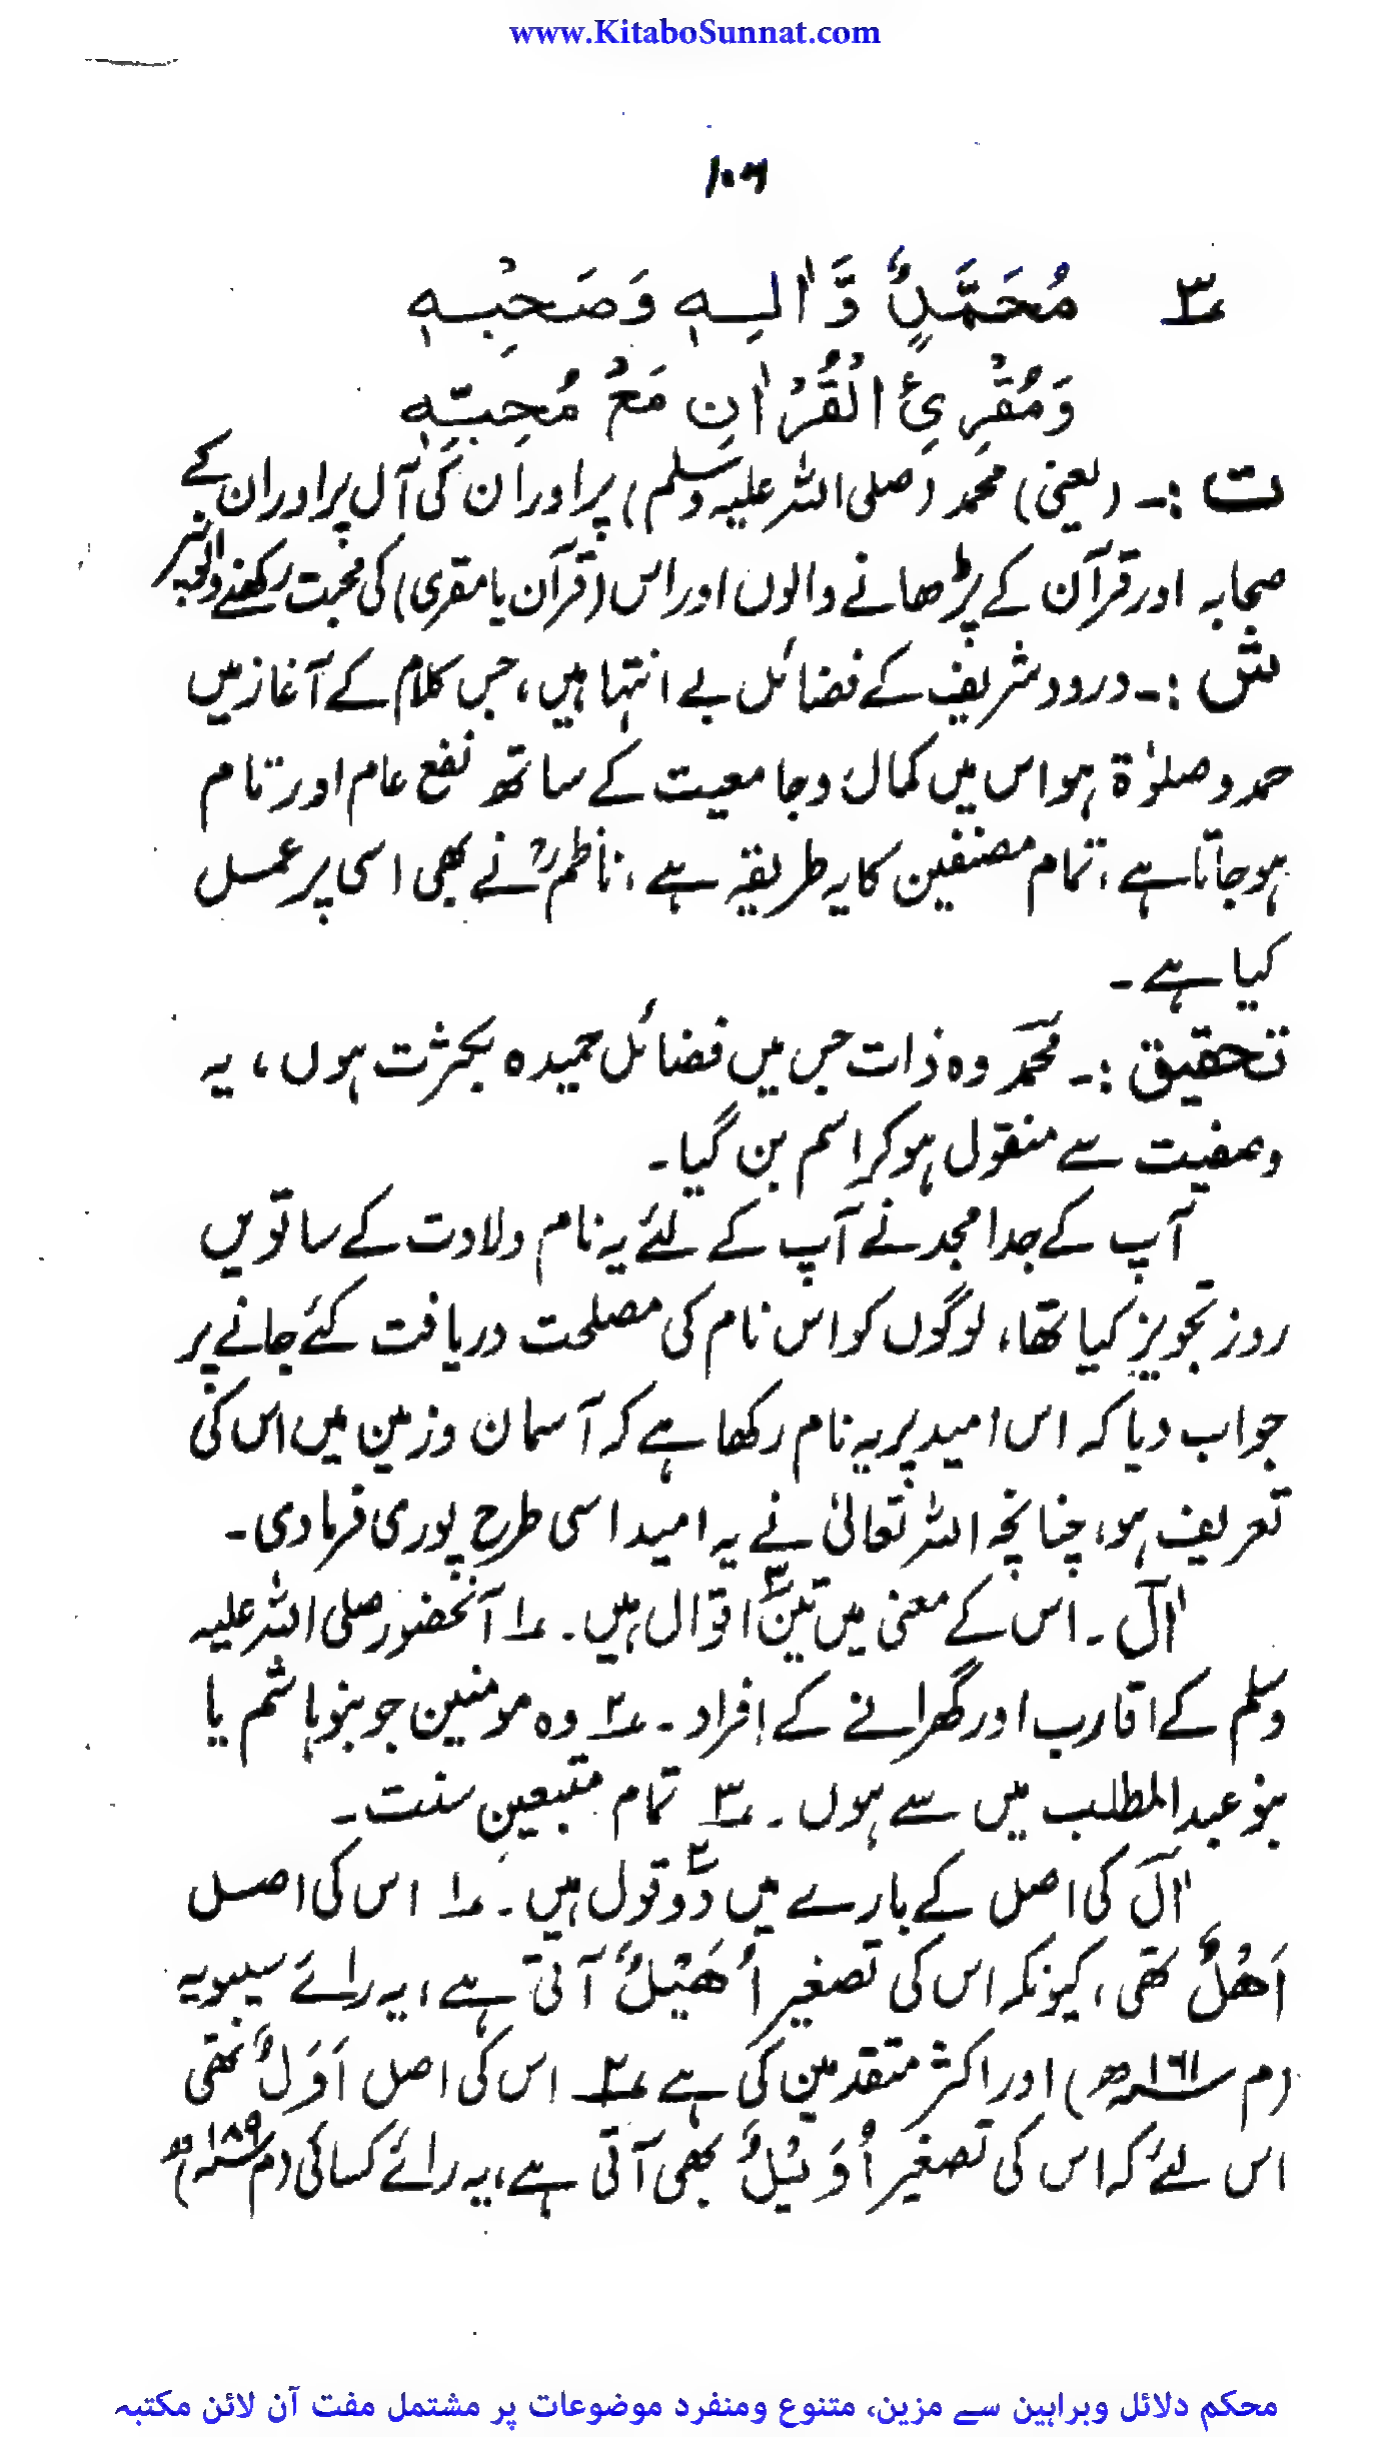 www.KitaboSunnat.com
۱۰۶
۳؎ مُحَمَّدٍ وَّاٰلِهٖ وَصَحْبِهٖ
وَمُقْرِئِ الْقُرْاٰنِ مَعْ مُحِبِّهٖ
ت :۔ (یعنی) محمد (صلی اللہ علیہ وسلم) پر اور ان کی آل پر اور ان کے
صحابہ اور قرآن کے پڑھانے والوں اور اس (قرآن یا مقری) کی محبت رکھنے والوں پر
ش :۔ درود شریف کے فضائل بے انتہا ہیں، جس کلام کے آغاز میں
حمد و صلوٰۃ ہو اس میں کمال و جامعیت کے ساتھ نفع عام اور تام
ہو جاتا ہے، تمام مصنفین کا یہ طریقہ ہے، ناظمؒ نے بھی اسی پر عمل
کیا ہے۔
تحقیق :۔ محمد وہ ذات جس میں فضائل حمیدہ بکثرت ہوں، یہ
وصفیت سے منقول ہو کر اسم بن گیا۔
آپ کے جد امجد نے آپ کے لئے یہ نام ولادت کے ساتویں
روز تجویز کیا تھا، لوگوں کو اس نام کی مصلحت دریافت کئے جانے پر
جواب دیا کہ اس امید پر یہ نام رکھا ہے کہ آسمان و زمین میں اس کی
تعریف ہو، چنانچہ اللہ تعالیٰ نے یہ امید اسی طرح پوری فرما دی۔
اٰل۔ اس کے معنی میں تین۳ اقوال ہیں۔ ۱؎ آنحضور صلی اللہ علیہ
وسلم کے اقارب اور گھرانے کے افراد۔ ۲؎ وہ مومنین جو بنو ہاشم یا
بنو عبدالمطلب میں سے ہوں۔ ۳؎ تمام متبعین سنت۔
اٰل کی اصل کے بارے میں دو۲ قول ہیں۔ ۱؎ اس کی اصل
اَهْلٌ تھی، کیونکہ اس کی تصغیر اُهَيْلٌ آتی ہے، یہ رائے سیبویہ
(م ۱۶۱ھ) اور اکثر متقدمین کی ہے ۲؎ اس کی اصل اَوَلٌ تھی
اس لئے کہ اس کی تصغیر اُوَيْلٌ بھی آتی ہے، یہ رائے کسائی (م ۱۸۹ھ)
محکم دلائل وبراہین سے مزین، متنوع ومنفرد موضوعات پر مشتمل مفت آن لائن مکتبہ